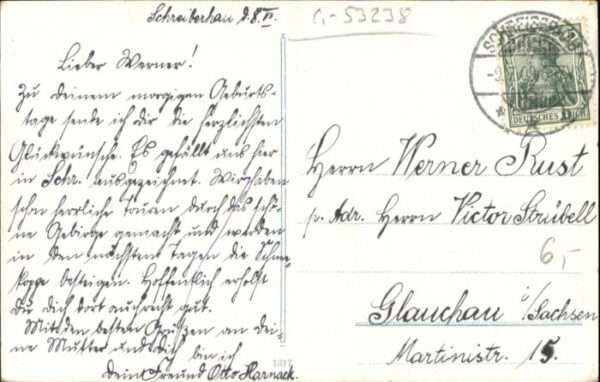 Schreiberhau d. 8. VI.
C-53238
Lieber Werner!
Zu deinem morgigen Geburts-
tage sende ich dir die herzlichsten
Glückwünsche. Es gefällt uns hier
in Schr. ausgezeichnet. Wir haben
schon herrliche Touren durch das schö-
ne Gebirge gemacht und werden
in den nächsten Tagen die Schnee-
koppe besteigen. Hoffentlich erholst
du dich dort auch recht gut.
Mit den besten Grüßen an dei-
ne Mutter und dich bin ich
dein Freund Otto Harnack.
DEUTSCHES REICH
Herrn Werner Rust
p. Adr. Herrn Victor Strübell
6,-
Glauchau i/Sachsen
Martinistr. 15.
1317